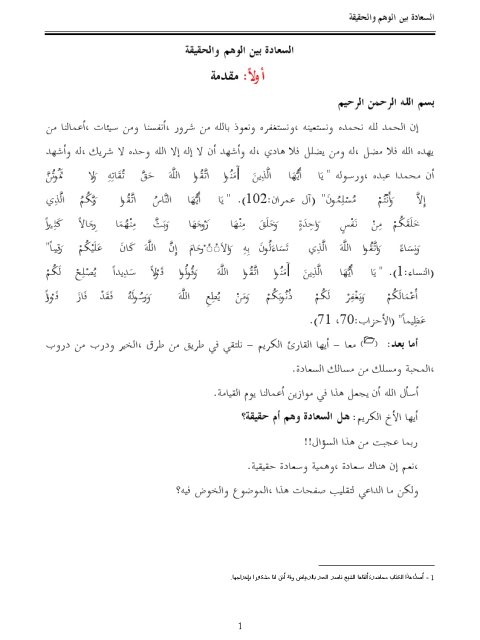 السعادة بين الوهم والحقيقة
السعادة بين الوهم والحقيقة
أولاً: مقدمة
بسم الله الرحمن الرحيم
إن الحمد لله نحمده ونستعينه ،ونستغفره ونعوذ بالله من شرور ،أنفسنا ومن سيئات ،أعمالنا من
يهده الله فلا مضل ،له ومن يضلل فلا هادي ،له وأشهد أن لا إله إلا الله وحده لا شريك ،له وأشهد
أن محمدا عبده ،ورسوله "يَا أَيُّهَا الَّذِينَ آمَنُوا اتَّقُوا اللَّهَ حَقَّ تُقَاتِهِ وَلا تَمُوتُنَّ
إِلاَّ وَأَنْتُمْ مُسْلِمُونَ" (آل عمران:102). "يَا أَيُّهَا النَّاسُ اتَّقُوا رَبَّكُمُ الَّذِي
خَلَقَكُمْ مِنْ نَفْسٍ وَاحِدَةٍ وَخَلَقَ مِنْهَا زَوْجَهَا وَبَثَّ مِنْهُمَا رِجَالاً كَثِيراً
وَنِسَاءً وَاتَّقُوا اللَّهَ الَّذِي تَسَاءَلُونَ بِهِ وَالأَرْحَامَ إِنَّ اللَّهَ كَانَ عَلَيْكُمْ رَقِيباً"
(النساء:1). "يَا أَيُّهَا الَّذِينَ آمَنُوا اتَّقُوا اللَّهَ وَقُولُوا قَوْلاً سَدِيداً يُصْلِحْ لَكُمْ
أَعْمَالَكُمْ وَيَغْفِرْ لَكُمْ ذُنُوبَكُمْ وَمَنْ يُطِعِ اللَّهَ وَرَسُولَهُ فَقَدْ فَازَ فَوْزاً
عَظِيماً" (الأحزاب:70، 71).
أما بعد: معا – أيها القارئ الكريم – نلتقي في طريق من طرق ،الخير ودرب من دروب
،المحبة ومسلك من مسالك السعادة.
أسأل الله أن يجعل هذا في موازين أعمالنا يوم القيامة.
أيها الأخ الكريم: هل السعادة وهم أم حقيقة؟
ربما عجبت من هذا السؤال!!
،نعم إن هناك سعادة ،وهمية وسعادة حقيقية.
ولكن ما الداعي لتقليب صفحات هذا ،الموضوع والخوض فيه؟
1 - أصل هذا الكتاب محاضرة ألقاها الشيخ ناصر العمر بالرياض وقد أذن لنا مشكورا بإخراجها.
1